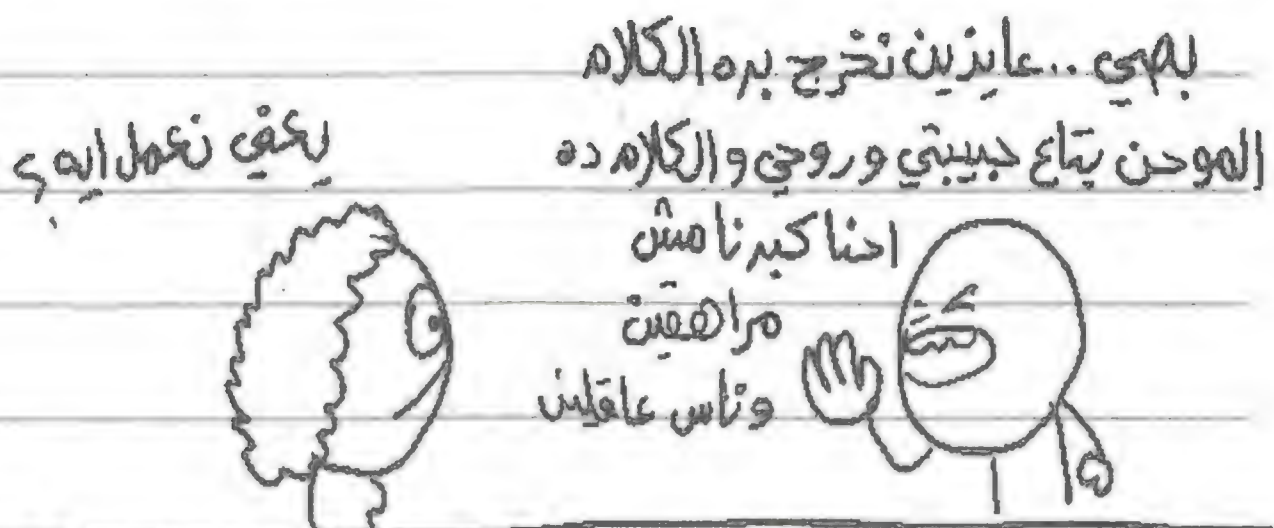 بصي .. عايزين نخرج بره الكلام
الموحن بتاع حبيبتي وروحي والكلام ده
احنا كبرنا مش
مراهقين
وناس عاقلين
يعني نعمل ايه؟